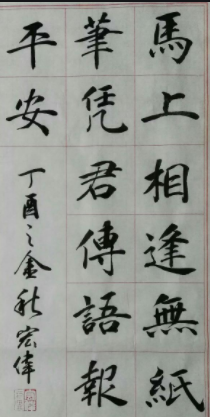 馬上相逢無紙
筆凭君傳語報
平安
丁酉之金秋宏偉